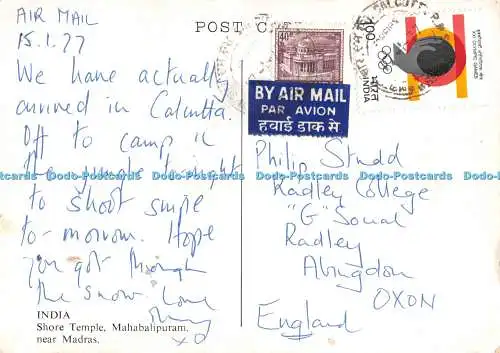 AIR MAIL
15.1.77
POST CARD
We have actually
arrived in Calcutta.
Off to camp in
the jungle tonight
to shoot snipe
to-morrow. Hope
you got through
the snow. Love
xo
INDIA
Shore Temple, Mahabalipuram,
near Madras.
BY AIR MAIL
PAR AVION
हवाई डाक से
Philip Studd
Radley College
"G" Social
Radley
Abingdon
OXON
England
CALCUTTA
100
भारत INDIA
Dodo-Postcards Dodo-Postcards Dodo-Postcards Dodo-Postcards Dodo-Postcards